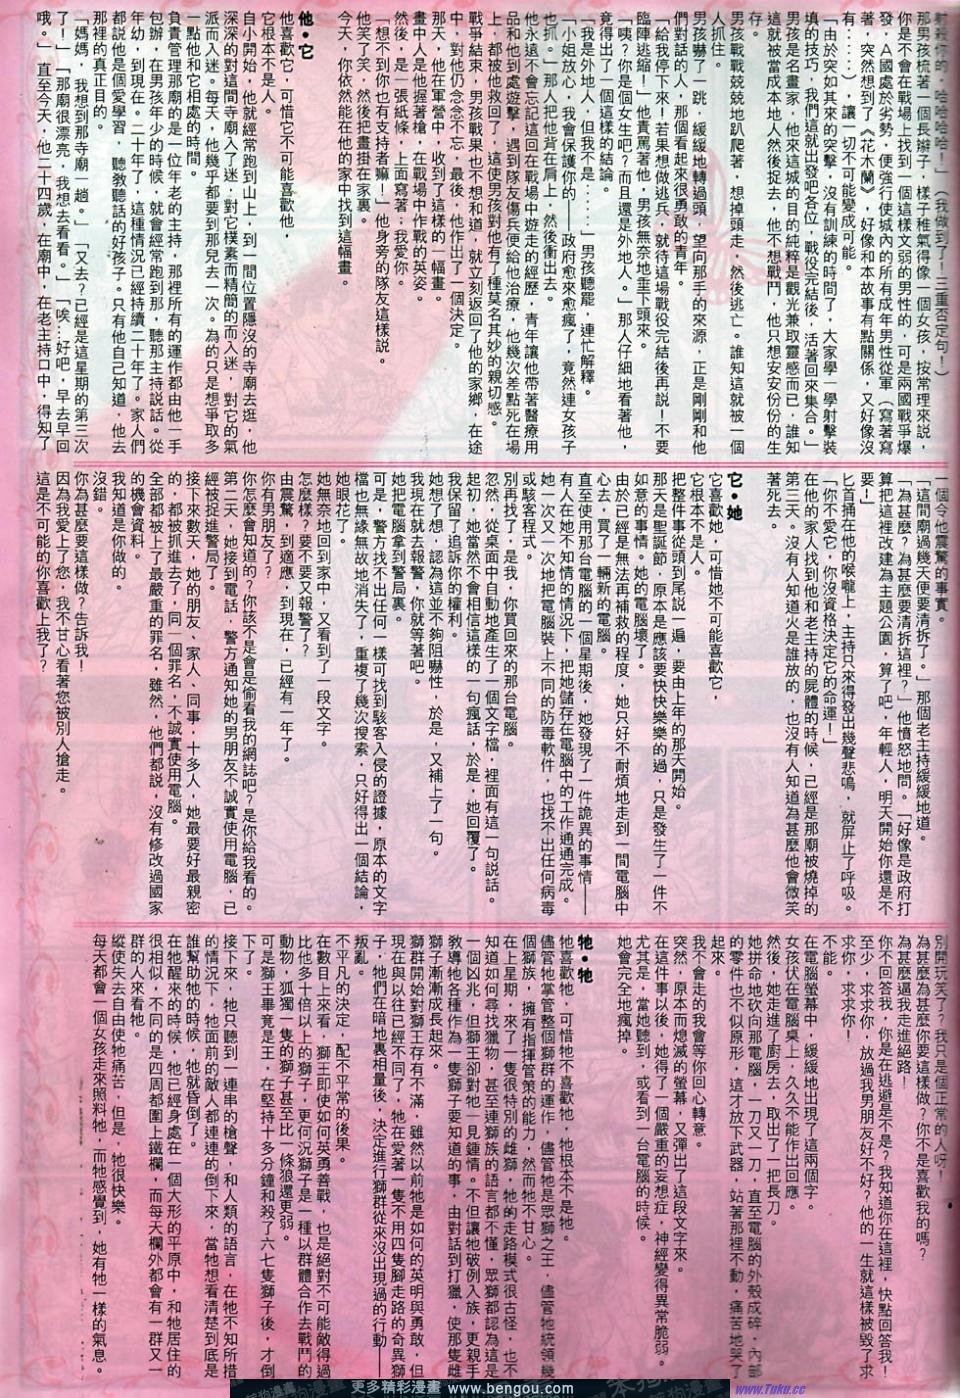 射殺你的，哈哈哈哈！」（我做到了！三重否定句！）
那男孩梳著一個長辮子，樣子稚氣得像一個女孩，按常理來說，
你是不會在戰場上找到一個這樣文弱的男性的，可是兩國戰爭爆
發，A國處於劣勢，便強行使城內的所有成年男性從軍（寫著寫
著，突然想到了《花木蘭》，好像和本故事有點關係，又好像沒
有……），讓一切不可能變成可能。
「由於突如其來的突擊，沒有訓練的時間了，大家學一學射擊裝
填的技巧，我們這就出發吧各位，戰役完結後，活著回來集合。」
男孩是名畫家，他來這城的目的純粹是觀光兼取靈感而已，誰知
這就被當成本地人然後捉去，他不想戰鬥，他只想安安份份的生
存。
男孩戰戰兢兢地趴爬著，想掉頭走，然後逃亡。誰知這就被一個
人抓住。
男孩嚇了一跳，緩緩地轉過頭，望向那手的來源，正是剛剛和他
們對話的人，那個看起來很勇敢的青年。
「給我停下來！若果想做逃兵，就待這場戰役完結後再說！不要
臨陣逃縮！」他責罵著他，男孩無奈地垂下頭來。
「咦？你是個女生吧？而且還是外地人。」那人仔細地看著他，
竟得出了一個這樣的結論。
「我是外地人，但我不是……」男孩聽罷，連忙解釋。
「小姐放心，我會保護你的——政府愈來愈瘋了，竟然連女孩子
也抓。」那人把他背在肩上，然後衝出去。
他永遠不會忘記這回在戰場中遊走的經歷，青年讓他帶著醫療用
品和他到處遊擊，遇到隊友傷兵便給他治療，他幾次差點死在場
上，都被他救回了，這使男孩對他有了種莫名其妙的親切感。
戰爭結束，男孩戰果也不想和道，就立刻返回了他的家鄉，在途
中，對他仍念念不忘，最後，他作出了一個決定。
那天，他在軍營中，收到了這樣的一幅畫。
畫中人是他握著槍，在戰場中作戰的英姿。
然後，是一張紙條，上面寫著：我愛你。
「想不到你也有支持者嘛！」他身旁的隊友這樣說。
他笑了笑，然後把畫掛在家中裏。
今天，你依然能在他的家中找到這幅畫。
他・它
他喜歡它，可惜它不可能喜歡他，
它根本不是人。
自小開始，他就經常跑到山上，到一間位置隱沒的寺廟去逛，他
深深的對這間寺廟入了迷，對它樸素而精簡的而入迷，對它的氣
派而入迷。每天，他幾乎都要到那兒去一次。為的只是想爭取多
一點他和它相處的時間。
負責管理那廟的是一位年老的主持，那裡所有的運作都由他一手
包辦，在男孩年少的時候，就會經常跑到那，聽那主持說話。從
年幼，到現在。二十年了，這種情況已經持續二十年了。家人們
都說他是個愛學習，聽教聽話的好孩子。只有他自己知道，他去
那裡的真正目的。
「媽媽，我想到那寺廟一趟。」「又去？已經是這星期的第三次
了！」「那廟很漂亮，我想去看看。」「唉……好吧，早去早回
哦。」直至今天，他二十四歲，在廟中，在老主持口中，得知了
一個令他震驚的事實。
「這間廟過幾天便要清拆了。」那個老主持緩緩地道。
「為甚麼？為甚麼要清拆這裡？」他憤怒地問。「好像是政府打
算把這裡改建為主題公園，算了吧，年輕人，明天開始你還是不
要—」
匕首捅在他的喉嚨上，主持只來得發出幾聲悲鳴，就屏止了呼吸。
「你不愛它，你沒資格決定它的命運！」
在他的家人找到他和老主持的屍體的時候，已經是那廟被燒掉的
第三天。沒有人知道火是誰放的，也沒有人知道為甚麼他會微笑
著死去。
它・她
它喜歡她，可惜她不可能喜歡它，
它根本不是人。
把整件事從頭到尾説一遍，要由上年的那天開始。
那天是聖誕節，原本是應該要快快樂樂的過，只是發生了一件不
如意的事情。她的電腦壞了。
由於已經是無法再補救的程度，她只好不耐煩地走到一間電腦中
心去，買了一輛新的電腦。
直至使用那台電腦的一個星期後，她發現了一件詭異的事情——
有人在她不知情的情況下，把她儲存在電腦中的工作通通完成。
她一次又一次地把電腦裝上不同的防毒軟件，也找不出任何病毒
或駭客程式。
別再找了，是我，你買回來的那台電腦。
忽然，從桌面中自動地產生了一個文字檔，裡面有這一句説話。
起初，她當然不會相信這樣的一句瘋話，於是，她回覆了。
我保留了追訴你的權利。
她想了想，認為這並不夠阻嚇性，於是，又補上了一句。
我現在就去報警，你就等著吧。
她把電腦拿到警局裏。
可是，警方找不出任何一樣可找到駭客入侵的證據，原本的文字
檔也無緣無故地消失了，重複了幾次搜索，只好得出一個結論，
她眼花了。
她無奈地回到家中，又看到了一段文字。
怎麼樣？要不要又報警了？
由震驚，到適應，到現在，已經有一年了。
你有男朋友了？
你怎麼會知道的？你該不是會是偷看我的網誌吧？是你給我看的。
第二天，她接到電話，警方通知她的男朋友不誠實使用電腦，已
經被捉進警局了。
接下來的數天，她的朋友、家人、同事，十多人，她最要好最親密
的，都被抓進去了，同一個罪名，不誠實使用電腦。
全部都被上了最嚴重的罪名，雖然，他們都說，沒有修改過國家
的機會資料。
我知道是你做的。
沒錯。
你為甚麼要這樣做？告訴我！
因為我愛上了您，我不甘心看著您被別人搶走。
這是不可能的你喜歡上我了？
別開玩笑了？我只是個正常的人呀！
為甚麼為甚麼你要這樣做？你不是喜歡我的嗎？
為甚麼逼我走進絕路！
你不回答我，你是在逃避是不是？我知道你在這裡，快點回答我！
至少，求求你，放過我男朋友好不好？他的一生就這樣被毀了求
求你，求求你！
不能。
在電腦螢幕中，緩緩地出現了這兩個字。
女孩伏在電腦桌上，久久不能作出回應。
然後，她走進了廚房去，取出了一把長刀。
她拼命地砍向那電腦，一刀又一刀，直至電腦的外殼成碎，內部
的零件也不似原形，這才放下武器，站著那裡不動，痛苦地哭了
起來。
我不會走的我會等你回心轉意。
突然，原本而熄滅的螢幕，又彈出了這段文字來。
在這件事以後，她得了一個嚴重的妄想症，神經變得異常脆弱。
尤其是，當她聽到，或看到一台電腦的時候。
她會完全地瘋掉。
牠・牠
牠喜歡牠，可惜牠不喜歡牠，牠根本不是牠。
儘管牠掌管整個獅群的運作，儘管牠是眾獅之王，儘管牠統領幾
個獅族，擁有指揮管策的能力，然而牠不甘心。
在上星期，來了一隻很特別的雌獅，牠的走路模式很古怪，也不
知道如何尋找獵物，甚至連獅族的語言都不懂，眾獅都認為這是
一個凶兆，但獅王卻對牠一見鍾情。不但讓牠破例入族，更親手
教導牠各種作為一隻獅子要知道的事，由對話到打獵，使那隻雌
獅子漸漸成長起來。
獅群開始對獅王存有不滿，雖然以前牠是如何的英明與勇敢，但
現在與以往已經不同了，牠在愛著一隻不用四隻腳走路的奇異獅
子，牠們在暗地裏相量後，決定進行獅群從來沒出現過的行動——
叛亂。
不平凡的決定，配不平常的後果。
在數目上來看，獅王即使如何英勇善戰，也是絕對不可能敵得過
比他多十倍以上的獅子，更何況獅子是一種以群體合作去戰鬥的
動物，孤獨一隻的獅子甚至比一條狼還更弱。
可是獅王畢竟是王，在堅持十多分鐘和殺了六七隻獅子後，才倒
下了。
接下來，牠只聽到一連串的槍聲，和人類的語言，在牠不知所措
的情況下，牠面前的敵人都連連的倒下來，當牠想看清楚到底是
誰幫助牠的時候，牠就昏倒了。
在牠醒來的時候，牠已經身處在一個大形的平原中，和牠居住的
很相似，不同的是四周都圍上鐵欄，而每天欄外都會有一群又一
群的人來看牠。
縱使失去自由使牠痛苦，但是，牠很快樂。
每天都會一個女孩走來照料牠，而牠感覺到，她有牠一樣的氣息。
更多精彩漫畫 www.bengou.com
www.Tuku.cc